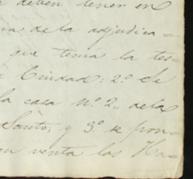 deben tener en
de la adjudica-
que tenia la tes-
Ciudad: 2º de
la casa nº 2 de la
Santo; y 3º se pon-
venta las Ha-